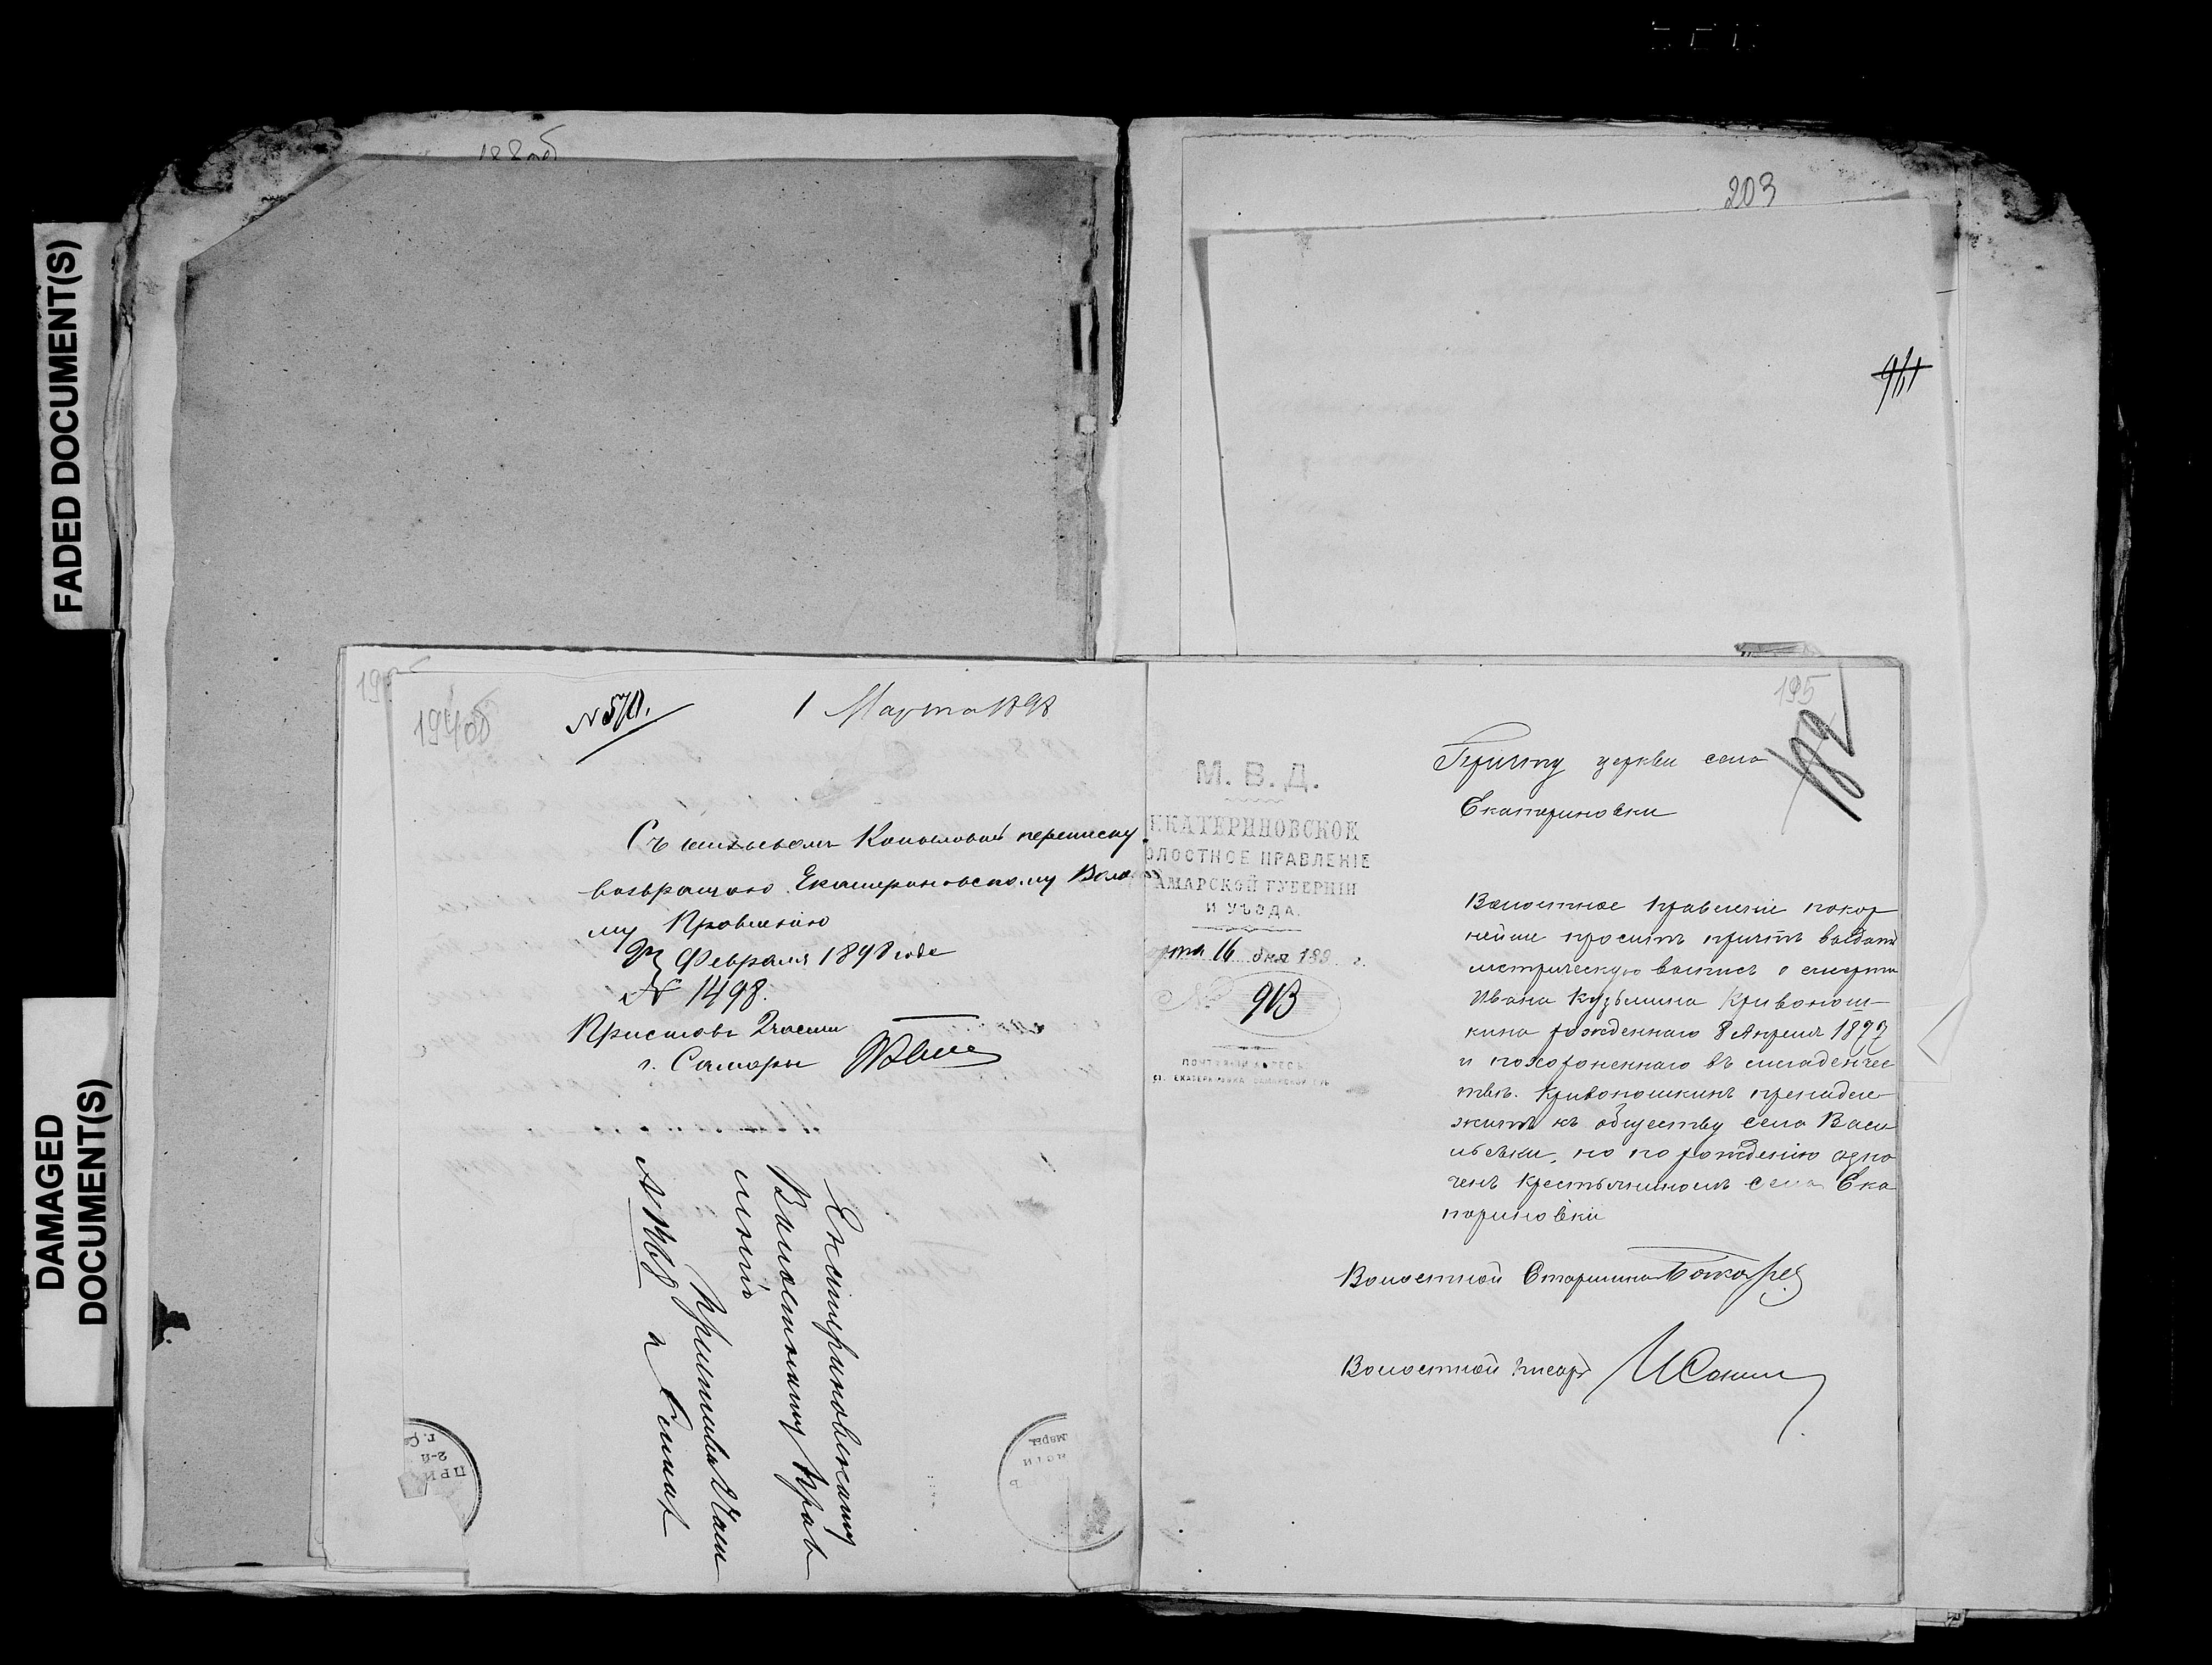 FADED DOCUMENT(S)
DAMAGED
DOCUMENT(S)
188об
203
194об
N 570.
1 Марта 1898
Съ письмомъ переписку
возвращаю Екатериновскому Воло
му Правленію
Февраля 1898 года
N 1498.
Приставъ 2 части
г. Самары
Екатериновскому
Волостному Прав
ленію
Пристава 2 Части
N 1498 г. Самара
ПРИ
2-й
г. С
мары
195
М. В. Д.
ЕКАТЕРИНОВСКОЕ
ОЛОСТНОЕ ПРАВЛЕНІЕ
АМАРСКОЙ ГУБЕРНІИ
И УѢЗДА.
рта 16 дня 189 г.
№ 913
ПОЧТОВЫЙ АДРЕСЪ
ст. ЕКАТЕРИНОВКА САМАРСКОЙ ГУБ
Причту церкви села
Екатериновки
Волостное Правленіе покор
нейше проситъ причтъ выдать
метрическую выпись о смерти
Ивана Кузьмина Кривонош-
кина рожденнаго 8 Апреля 1877
и похороненнаго въ младенчес
твѣ. Кривоношкинъ пренадле-
житъ къ обществу села Васи
льевки, но по рожденію
ченъ крестьяниномъ села Ека
териновки
Волостной Старшина Токарев
Волостной писарь